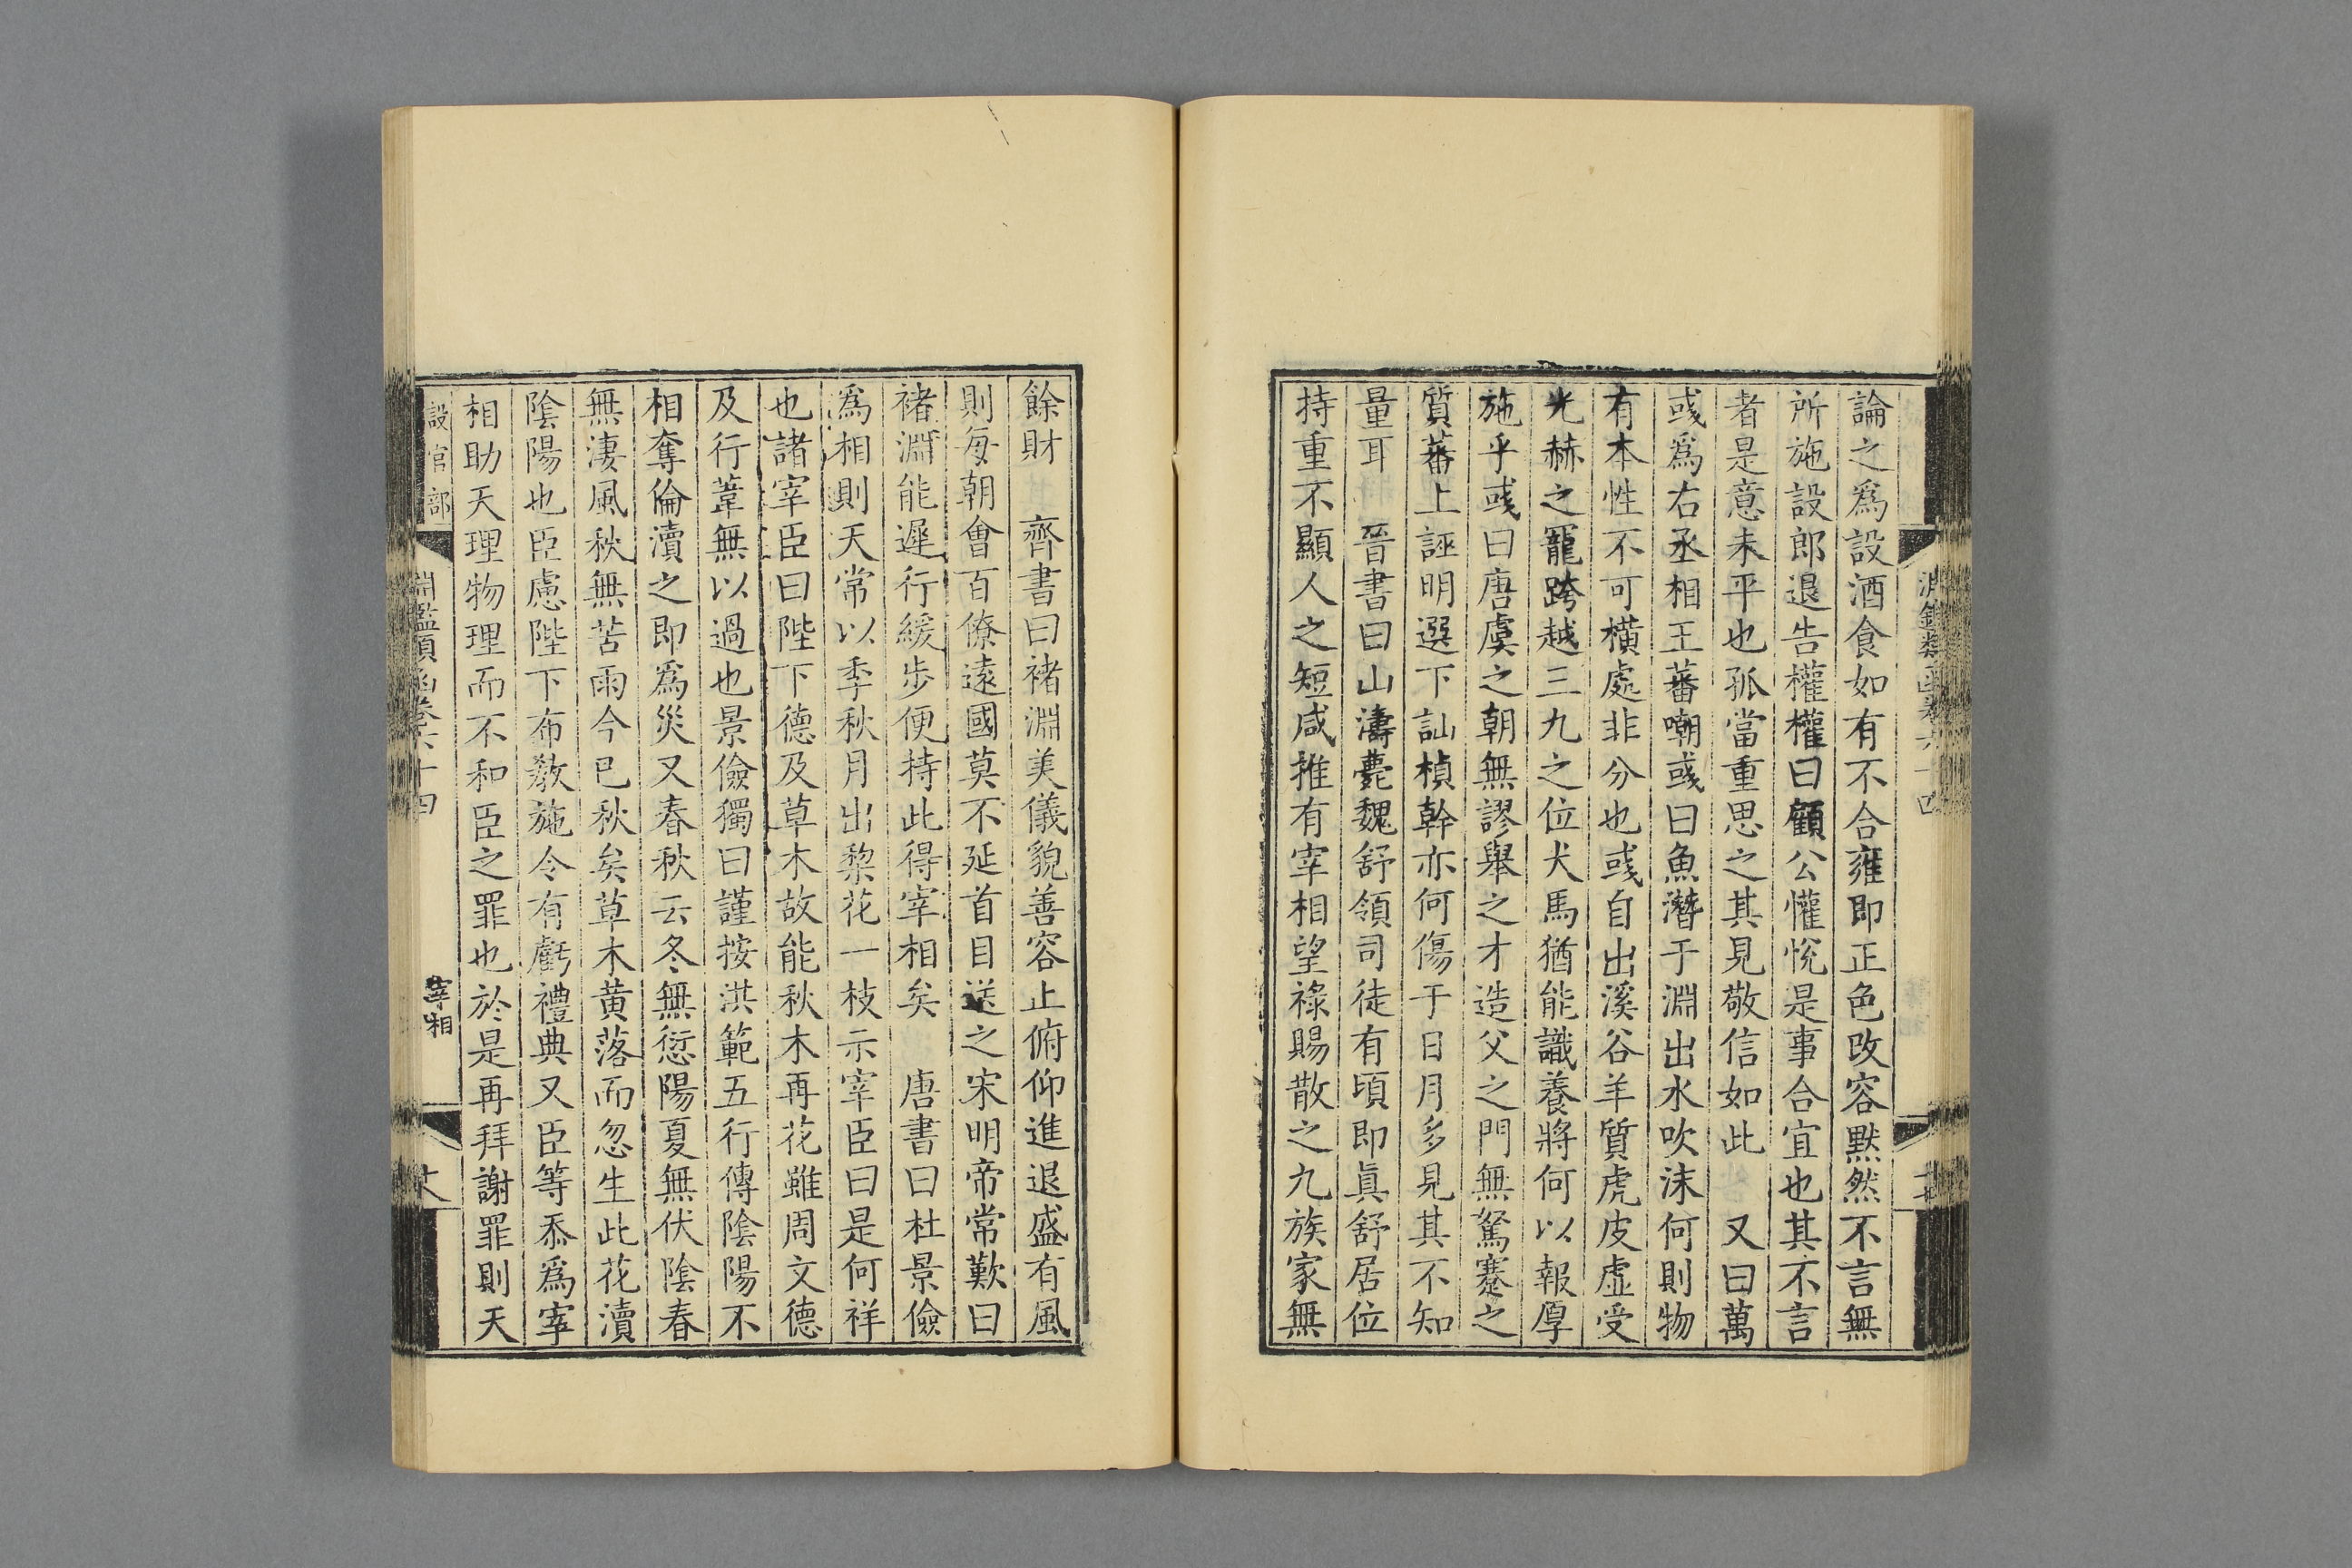 論之爲設酒食如有不合雍即正色改容默然不言無
所施設郎退告權權曰顧公懽悅是事合宜也其不言
者是意未平也孤當重思之其見敬信如此　又曰萬
彧爲右丞相王蕃嘲彧曰魚潛于淵出水吹沫何則物
有本性不可橫處非分也彧自出溪谷羊質虎皮虛受
光赫之寵跨越三九之位犬馬猶能識養將何以報厚
施乎彧曰唐虞之朝無謬舉之才造父之門無駑蹇之
質蕃上誣明選下訕楨幹亦何傷于日月多見其不知
量耳　晉書曰山濤薨魏舒領司徒有頃即眞舒居位
持重不顯人之短咸推有宰相望祿賜散之九族家無
餘財　齊書曰褚淵美儀貌善容止俯仰進退盛有風
則每朝會百僚遠國莫不延首目送之宋明帝常歎曰
褚淵能遲行緩步便持此得宰相矣　唐書曰杜景儉
爲相則天常以季秋月出棃花一枝示宰臣曰是何祥
也諸宰臣曰陛下德及草木故能秋木再花雖周文德
及行葦無以過也景儉獨曰謹按洪範五行傳陰陽不
相奪倫瀆之即爲災又春秋云冬無愆陽夏無伏陰春
無淒風秋無苦雨今巳秋矣草木黄落而忽生此花瀆
陰陽也臣慮陛下布教施令有虧禮典又臣等忝爲宰
相助天理物理而不和臣之罪也於是再拜謝罪則天
設官部　淵鑑類函卷六十四　宰相　十八